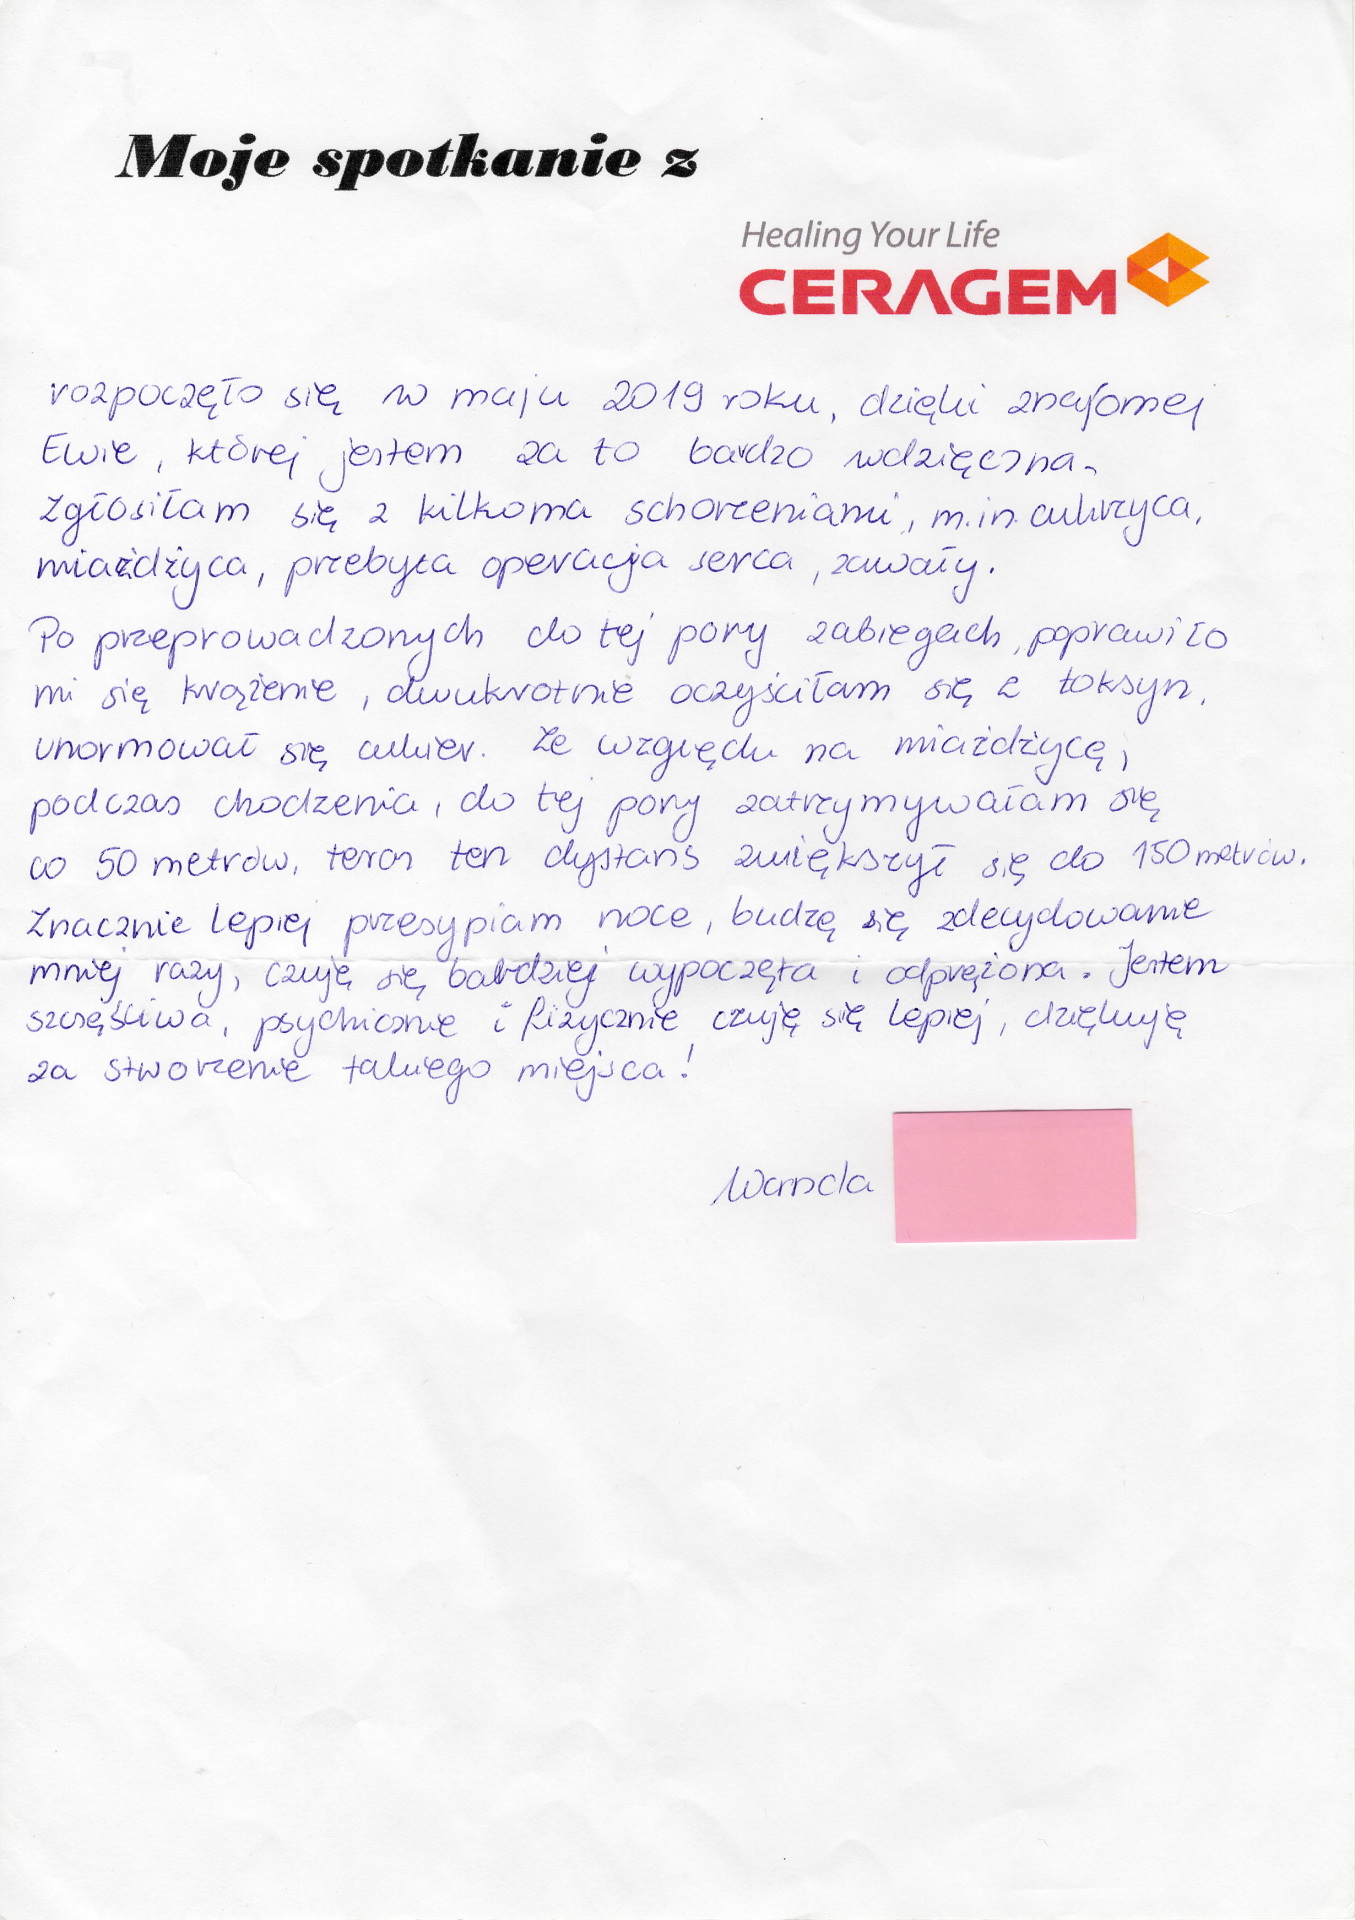 Moje spotkanie z
Healing Your Life
CERAGEM
rozpoczęło się w maju 2019 roku, dzięki znajomej
Ewie, której jestem za to bardzo wdzięczna.
Zgłosiłam się z kilkoma schorzeniami, m.in. cukrzyca,
miażdżyca, przebyta operacja serca, zawały.
Po przeprowadzonych do tej pory zabiegach, poprawiło
mi się krążenie, dwukrotnie oczyściłam się z toksyn,
unormował się cukier. Ze względu na miażdżycę,
podczas chodzenia, do tej pory zatrzymywałam się
co 50 metrów, teraz ten dystans zwiększył się do 150 metrów.
Znacznie lepiej przesypiam noce, budzę się zdecydowanie
mniej razy, czuję się bardziej wypoczęta i odprężona. Jestem
szczęśliwa, psychicznie i fizycznie czuję się lepiej, dziękuję
za stworzenie takiego miejsca!
Wanda